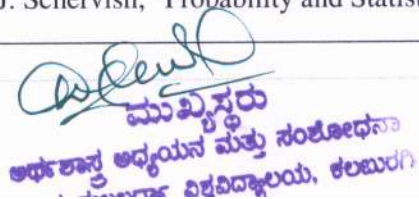 J. Schervish, "Probability and Statist
ಮುಖ್ಯಸ್ಥರು
ಅರ್ಥಶಾಸ್ತ್ರ ಅಧ್ಯಯನ ಮತ್ತು ಸಂಶೋಧನಾ
ವಿಶ್ವವಿದ್ಯಾಲಯ, ಕಲಬುರಗಿ